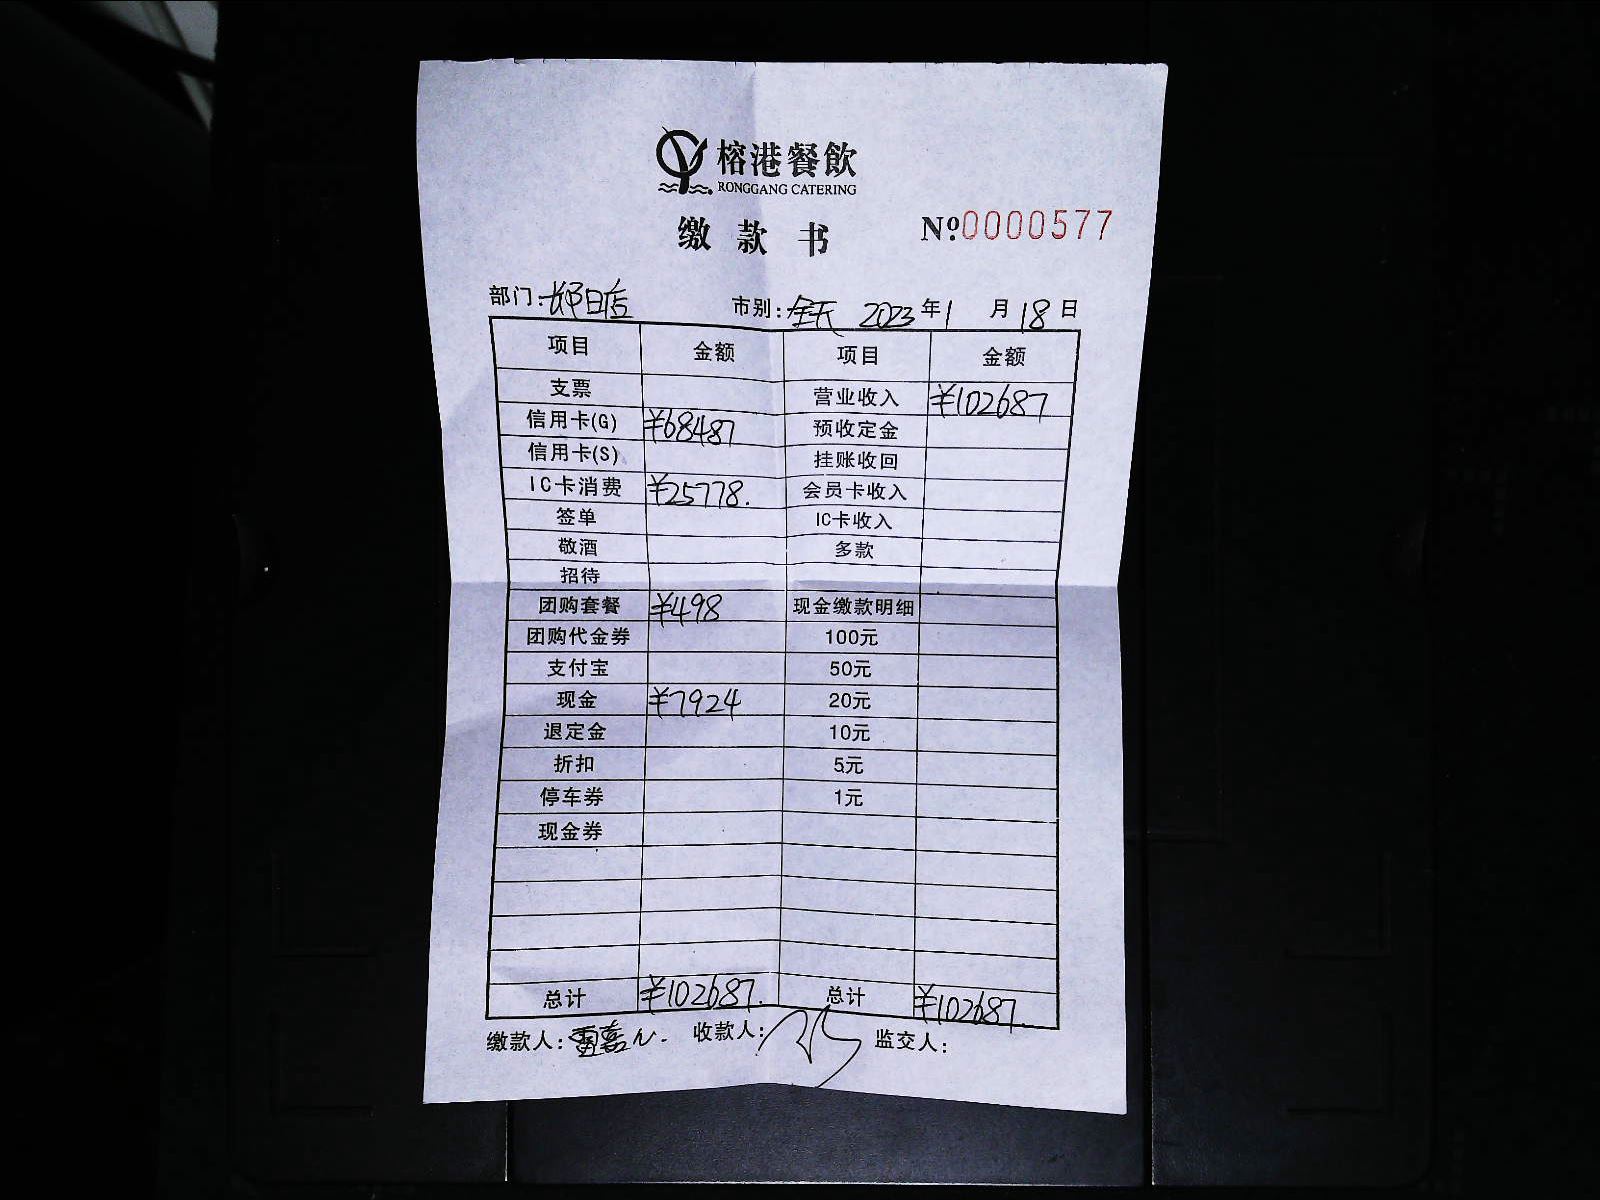 榕港餐飲
RONGGANG CATERING
缴款书
Nº:0000577
部门: 日店 市别: 全天 2023年1月18日
项目 金额 项目 金额
支票 营业收入 ¥102687
信用卡(G) ¥68487 预收定金
信用卡(S) 挂账收回
IC卡消费 ¥25778. 会员卡收入
签单 IC卡收入
敬酒 多款
招待
团购套餐 ¥498 现金缴款明细
团购代金券 100元
支付宝 50元
现金 ¥7924 20元
退定金 10元
折扣 5元
停车券 1元
现金券
总计 ¥102687. 总计 ¥102687.
缴款人: 收款人: 监交人: